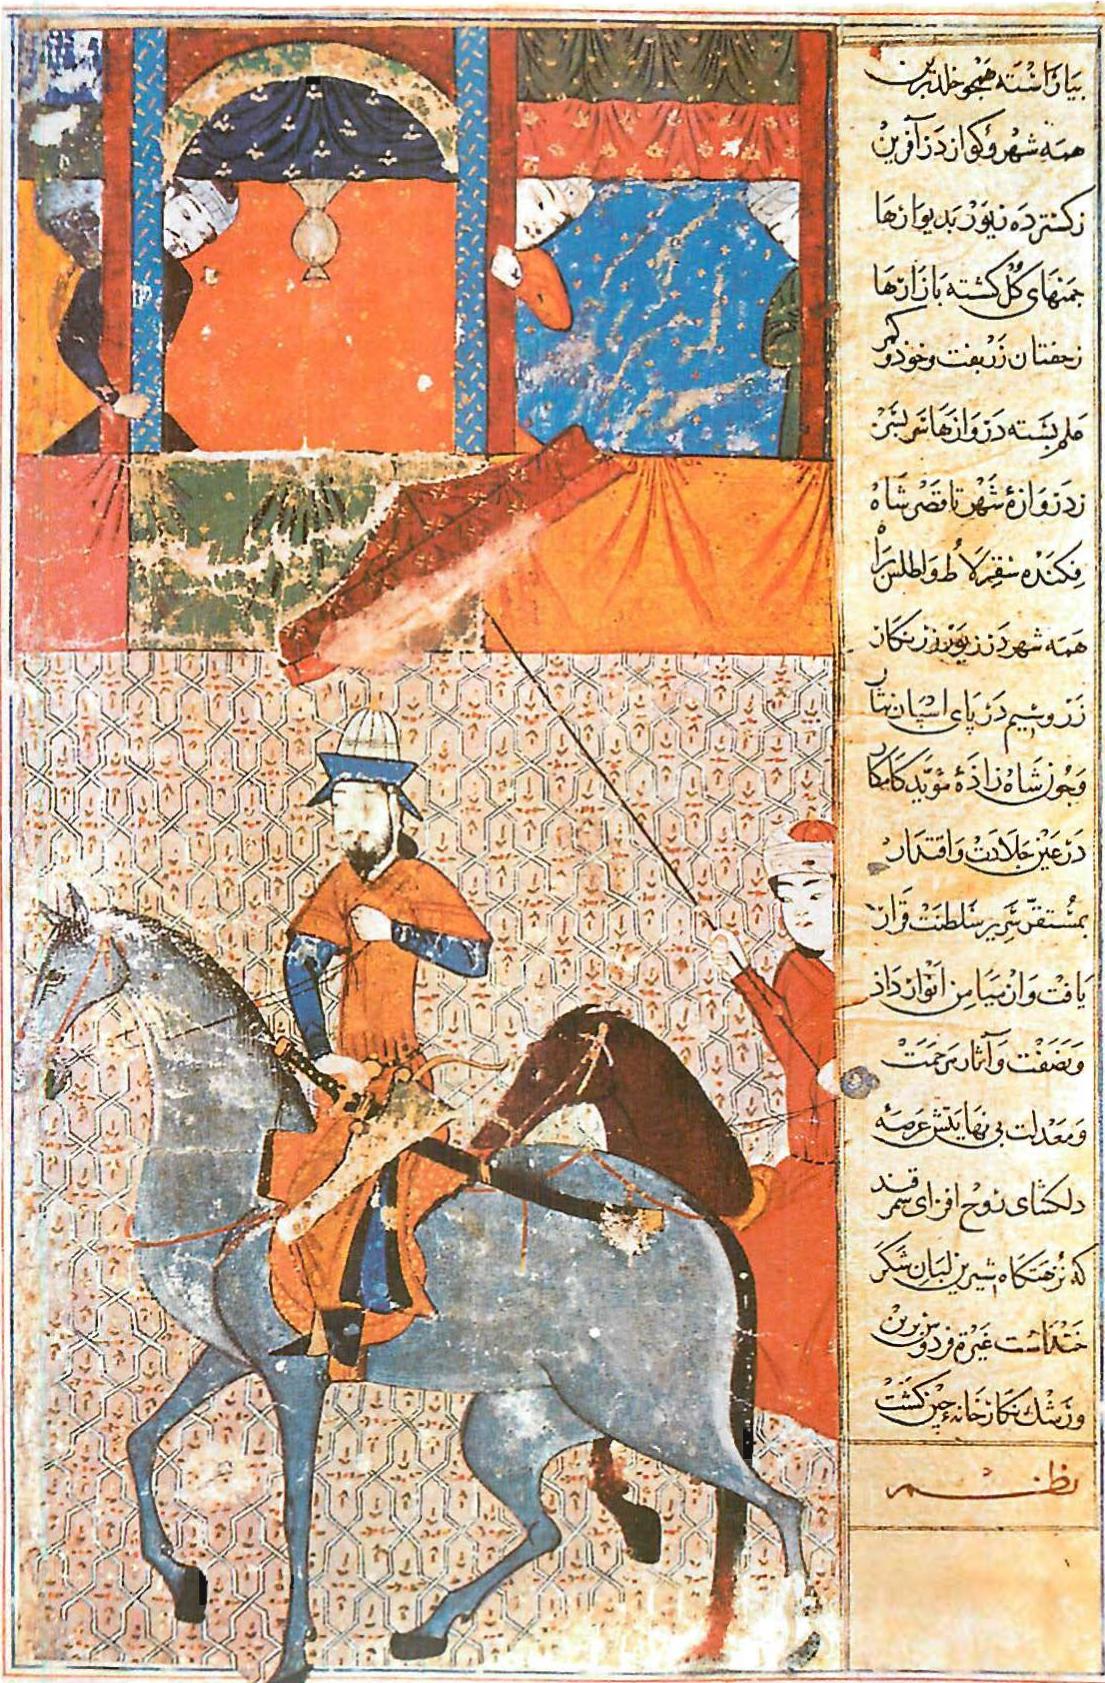 بیاراسته همچو خلد برین
همه شهر و کو از در آفرین
ز گسترده زیور بدیوارها
چمنهای گل گشته بازارها
ز خفتان زربفت و خود و کمر
علم بسته دروازها سربسر
ز دروازهٔ شهر تا قصر شاه
فکنده سقرلاط و اطلس براه
همه شهر در زیور زرنگار
زر و سیم در پای اسبان نثار
و چون شاه زاذهٔ مؤید کامکار
در عین جلادت و اقتدار
بمستقر سریر سلطنت قرار
یافت و از میامن انوار داد
و نصفت و آثار مرحمت
و معدلت بی نهایتش عرصهٔ
دلکشای روح افزای سمرقند
که نزهتگاه شیرین لبان شکر
خنداست غیرة فردوس برین
و رشک نگارخانه چین گشت
نظم